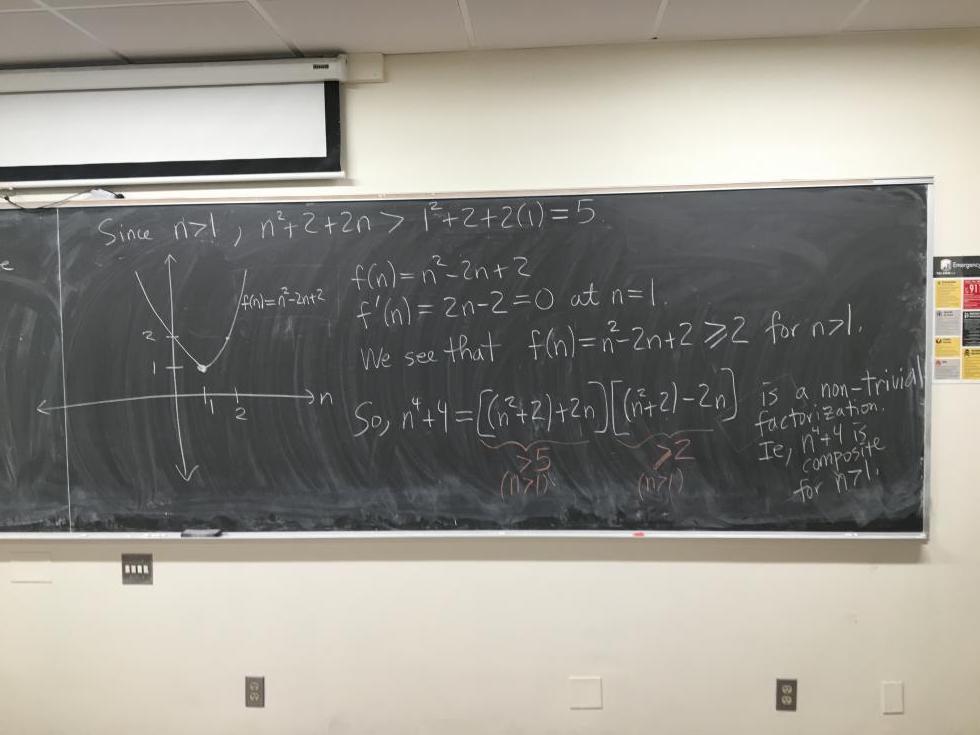 e
Since n>1, n²+2+2n > 1²+2+2(1)=5
f(n)=n²-2n+2
2
1
1
2
n
f(n)=n²-2n+2
f'(n)=2n-2=0 at n=1.
We see that f(n)=n²-2n+2 ⩾2 for n>1.
So, n⁴+4=[(n²+2)+2n][(n²+2)-2n]
>5
(n>1)
>2
(n>1)
is a non-trivial
factorization.
Ie, n⁴+4 is
composite
for n>1.
Emergency
911